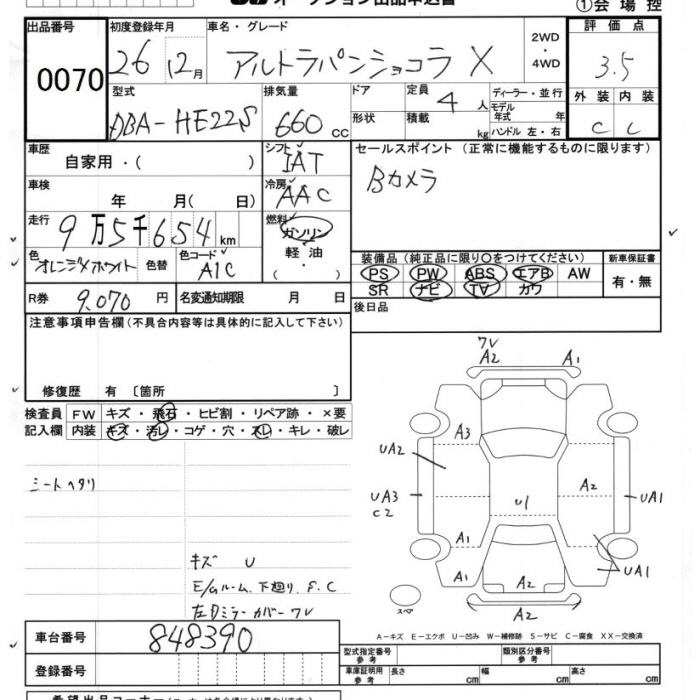 オークション出品申込書
①会場控
出品番号 初度登録年月 車名・グレード 2WD・4WD 評価点
0070 26 12月 アルトラパンショコラ X 3.5
型式 排気量 ドア 定員 4人 ディーラー・並行 外装 内装
DBA-HE22S 660cc 形状 積載 kg モデル年式 年 ハンドル 左・右 C C
車歴 自家用・( ) シフト IAT セールスポイント(正常に機能するものに限ります)
車検 年 月( 日) 冷房 AAC Bカメラ
走行 9万5千654km 燃料 ガソリン 軽油 ・( )
色 オレンジメホワイト 色替 色コード A1C 装備品(純正品に限り○をつけてください) 新車保証書
PS PW ABS エアB AW 有・無
SR ナビ TV カワ
R券 9,070円 名変通知期限 月 日 後日品
注意事項申告欄(不具合内容等は具体的に記入して下さい)
修復歴 有 〔箇所 〕
検査員 FW キズ・飛石・ヒビ割・リペア跡・×要
記入欄 内装 キズ・汚レ・コゲ・穴・スレ・キレ・破レ
シートヘタリ
キズ U
E/Gルーム、下廻り、S、C
左Dミラーカバーワレ
ワレ
A2 A1
A3
UA2
A2
UA3 U1 UA1
C2
A1
UA1
A1 A2
スペア A2
A-キズ E-エクボ U-凹み W-補修跡 S-サビ C-腐食 XX-交換済
車台番号 848390
型式指定番号 参考 類別区分番号 参考
登録番号
車庫証明用 参考 長さ cm 幅 cm 高さ cm